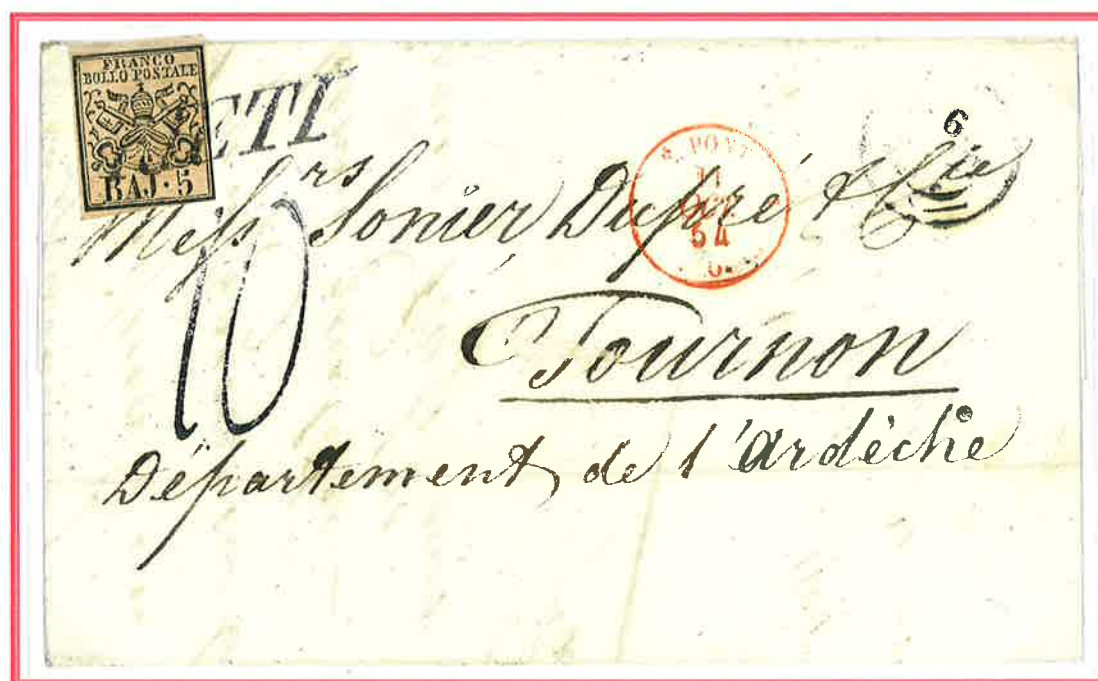 FRANCO
BOLLO POSTALE
BAJ·5
ETI
6
Messrs Sonier Dupré & Cie
10
Tournon
Département de l'Ardèche
PONT
11
54